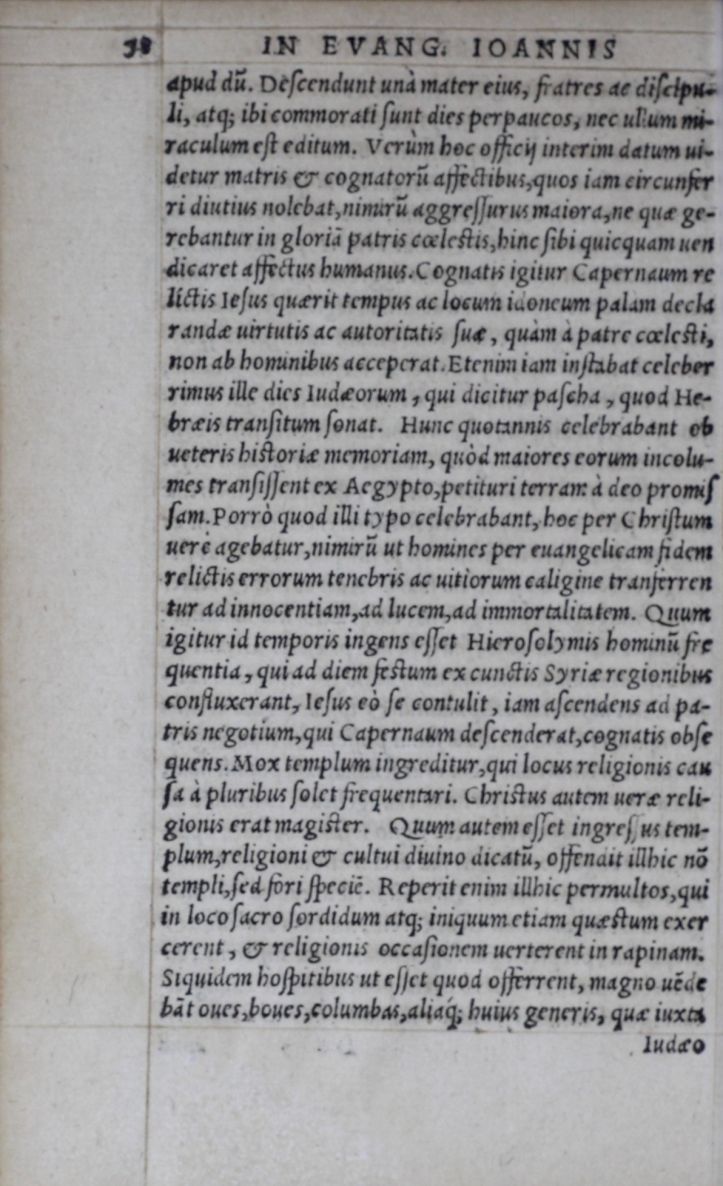 38 IN EVANG. IOANNIS
apud dũ. Descendunt unà mater eius, fratres ac discipu-
li, atq; ibi commorati sunt dies perpaucos, nec ullum mi-
raculum est editum. Verùm hoc officij interim datum ui-
detur matris & cognatorũ affectibus, quos iam circunfer
ri diutius nolebat, nimirũ aggressurus maiora, ne quæ ge-
rebantur in gloriã patris cœlestis, hinc sibi quicquam uen
dicaret affectus humanus. Cognatis igitur Capernaum re
lictis Iesus quærit tempus ac locum idoneum palam decla
randæ uirtutis ac autoritatis suæ, quàm à patre cœlesti,
non ab hominibus acceperat. Etenim iam instabat celeber
rimus ille dies Iudæorum, qui dicitur pascha, quod He-
bræis transitum sonat. Hunc quotannis celebrabant ob
ueteris historiæ memoriam, quòd maiores eorum incolu-
mes transissent ex Aegypto, petituri terram à deo promis
sam. Porrò quod illi typo celebrabant, hoc per Christum
uerè agebatur, nimirũ ut homines per euangelicam fidem
relictis errorum tenebris ac uitiorum caligine tranferren
tur ad innocentiam, ad lucem, ad immortalitatem. Quum
igitur id temporis ingens esset Hierosolymis hominũ fre
quentia, qui ad diem festum ex cunctis Syriæ regionibus
confluxerant, Iesus eò se contulit, iam ascendens ad pa-
tris negotium, qui Capernaum descenderat, cognatis obse
quens. Mox templum ingreditur, qui locus religionis cau
sa à pluribus solet frequentari. Christus autem ueræ reli-
gionis erat magister. Quum autem esset ingressus tem-
plum, religioni & cultui diuino dicatũ, offendit illhic nõ
templi, sed fori speciẽ. Reperit enim illhic permultos, qui
in loco sacro sordidum atq; iniquum etiam quæstum exer
cerent, & religionis occasionem uerterent in rapinam.
Siquidem hospitibus ut esset quod offerrent, magno uẽde
bãt oues, boues, columbas, aliaq́; huius generis, quæ iuxta
Iudæo